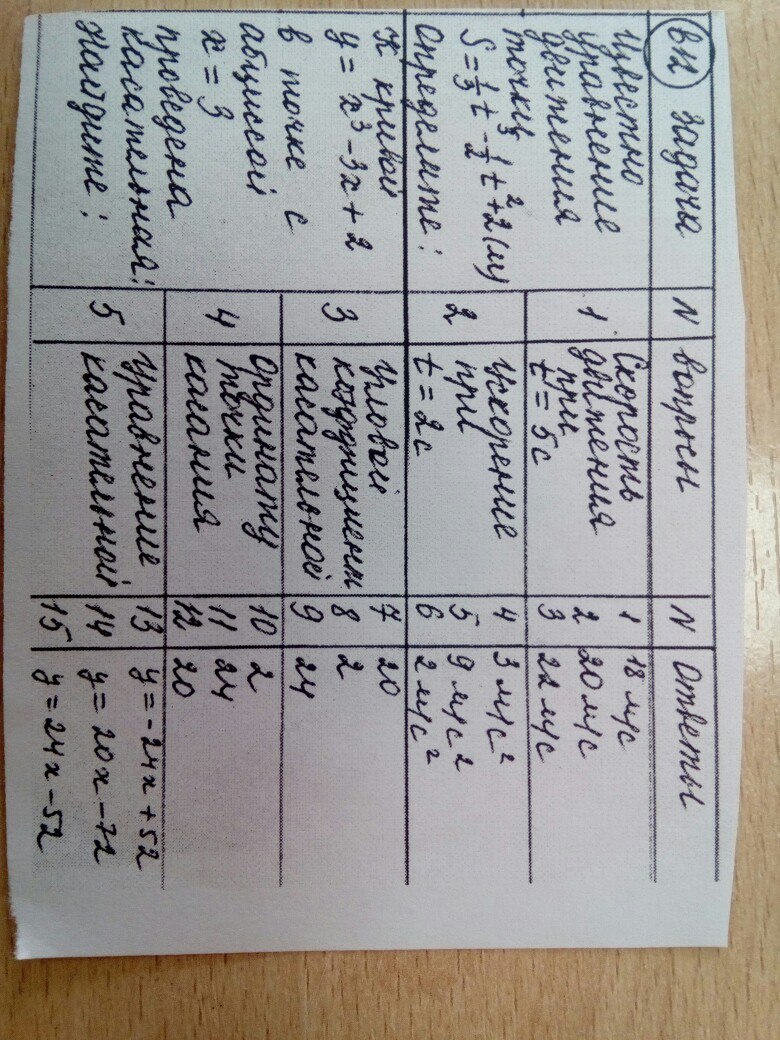 В12 Задача N Вопросы N Ответы
Известно
уравнение
движения
точки
S = 1/3 t³ - 1/2 t² + 2 (м)
Определите:
1
Скорость
движения
при
t = 5с
1 18 м/с
2 20 м/с
3 22 м/с
2
Ускорение
при
t = 2с
4 3 м/с²
5 9 м/с²
6 2 м/с²
К кривой
y = x³ - 3x + 2
в точке с
абциссой
x = 3
проведена
касательная.
Найдите:
3
Угловой
коэффициент
касательной
7 20
8 2
9 24
4
Ординату
точки
касания
10 2
11 24
12 20
5
Уравнение
касательной
13 y = -24x + 52
14 y = 20x - 72
15 y = 24x - 52